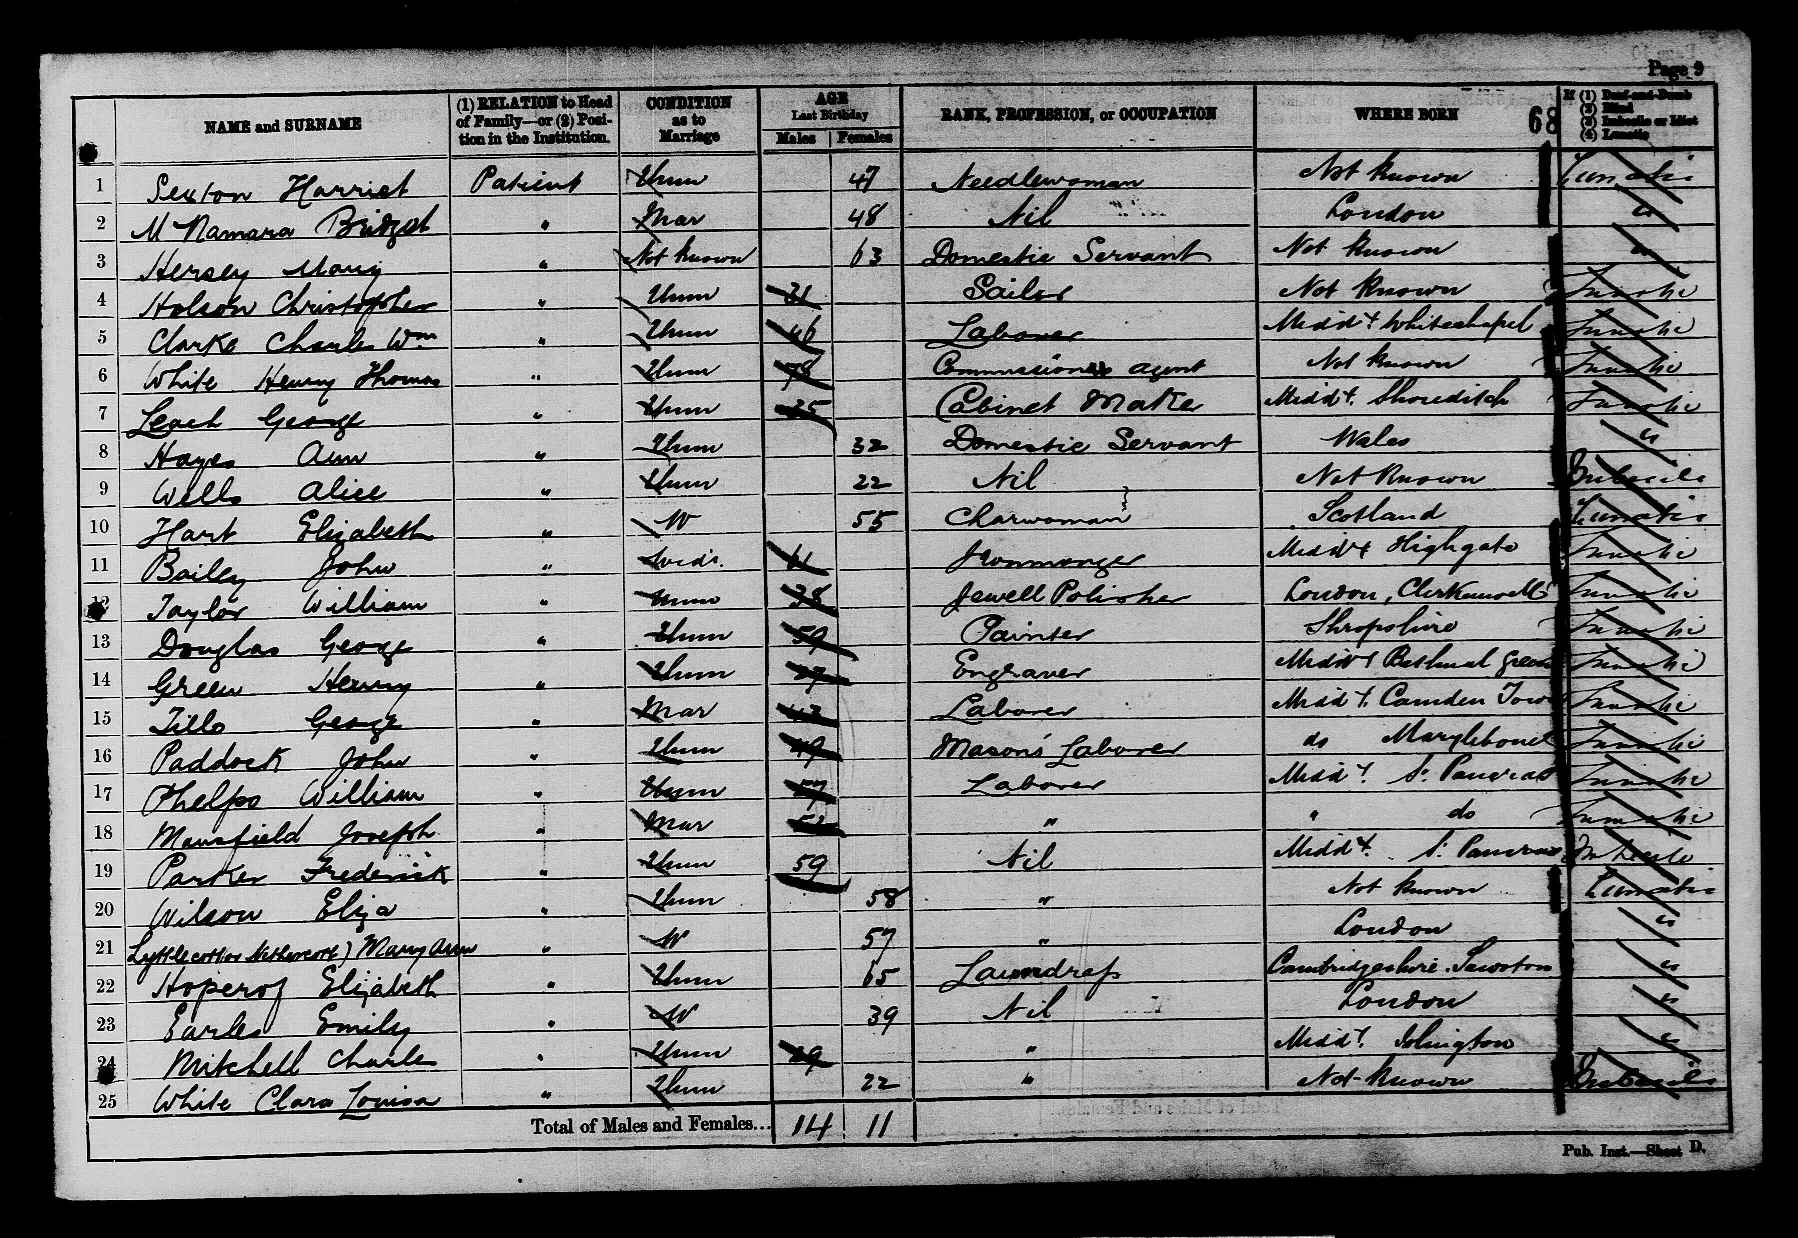 Page 9
NAME and SURNAME
(1) RELATION to Head of Family—or (2) Position in the Institution.
CONDITION as to Marriage
AGE Last Birthday
Males Females
RANK, PROFESSION, or OCCUPATION
WHERE BORN
68
If (1) Deaf-and-Dumb (2) Blind (3) Imbecile or Idiot (4) Lunatic
1 Sexton Harriet Patient Unm 47 Needlewoman Not known Lunatic
2 McNamara Bridget " Mar 48 Nil London "
3 Hersey Mary " Not known 63 Domestic Servant Not known "
4 Holson Christopher " Unm 31 Sailor Not known Lunatic
5 Clarke Charles Wm " Unm 46 Laborer Middx Whitechapel Lunatic
6 White Henry Thomas " Unm 78 Commission agent Not known Lunatic
7 Leach George " Unm 35 Cabinet Maker Middx. Shoreditch Lunatic
8 Hayes Ann " Unm 32 Domestic Servant Wales "
9 Wells Alice " Unm 22 Nil Not known Imbecile
10 Hart Elizabeth " W 55 Charwoman Scotland Lunatic
11 Bailey John " Widr. 61 Ironmonger Middx Highgate Lunatic
12 Taylor William " Unm 38 Jewell Polisher London, Clerkenwell Lunatic
13 Douglas George " Unm 59 Painter Shropshire Lunatic
14 Green Henry " Unm 27 Engraver Middx Bethnal Green Lunatic
15 Tills George " Mar 43 Laborer Middx. Camden Town Lunatic
16 Paddock John " Unm 49 Mason's Laborer do Marylebone Lunatic
17 Phelps William " Unm 57 Laborer Middx St Pancras Lunatic
18 Mansfield Joseph " Mar 52 " " do Lunatic
19 Parker Frederick " Unm 59 Nil Middx. St Pancras Imbecile
20 Wilson Eliza " Unm 58 " Not known Lunatic
21 Lyttlecott (or Nethercott) Mary Ann " W 57 " London "
22 Hoperof Elizabeth " Unm 65 Laundress Cambridgeshire. Sawston "
23 Earles Emily " W 39 Nil London "
24 Mitchell Charles " Unm 29 " Middx. Islington "
25 White Clara Louisa " Unm 22 " Not known Imbecile
Total of Males and Females... 14 11
Pub. Inst.—Sheet D.